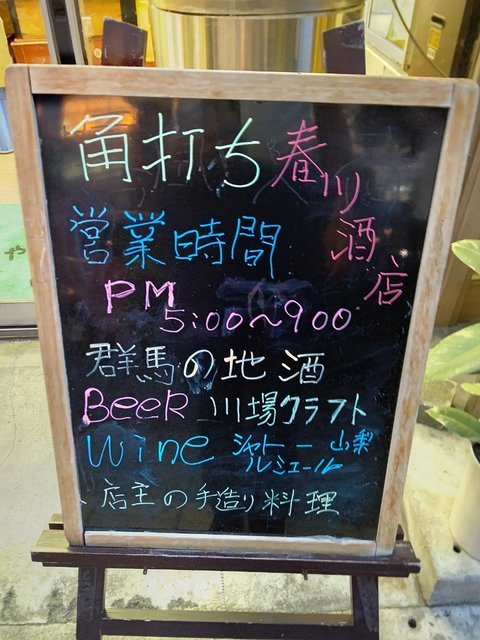 角打ち 春川酒店
営業時間
PM
5:00〜900
群馬の地酒
BeeR 川場クラフト
wine シャトー 山梨
ルミエール
店主の手造り料理